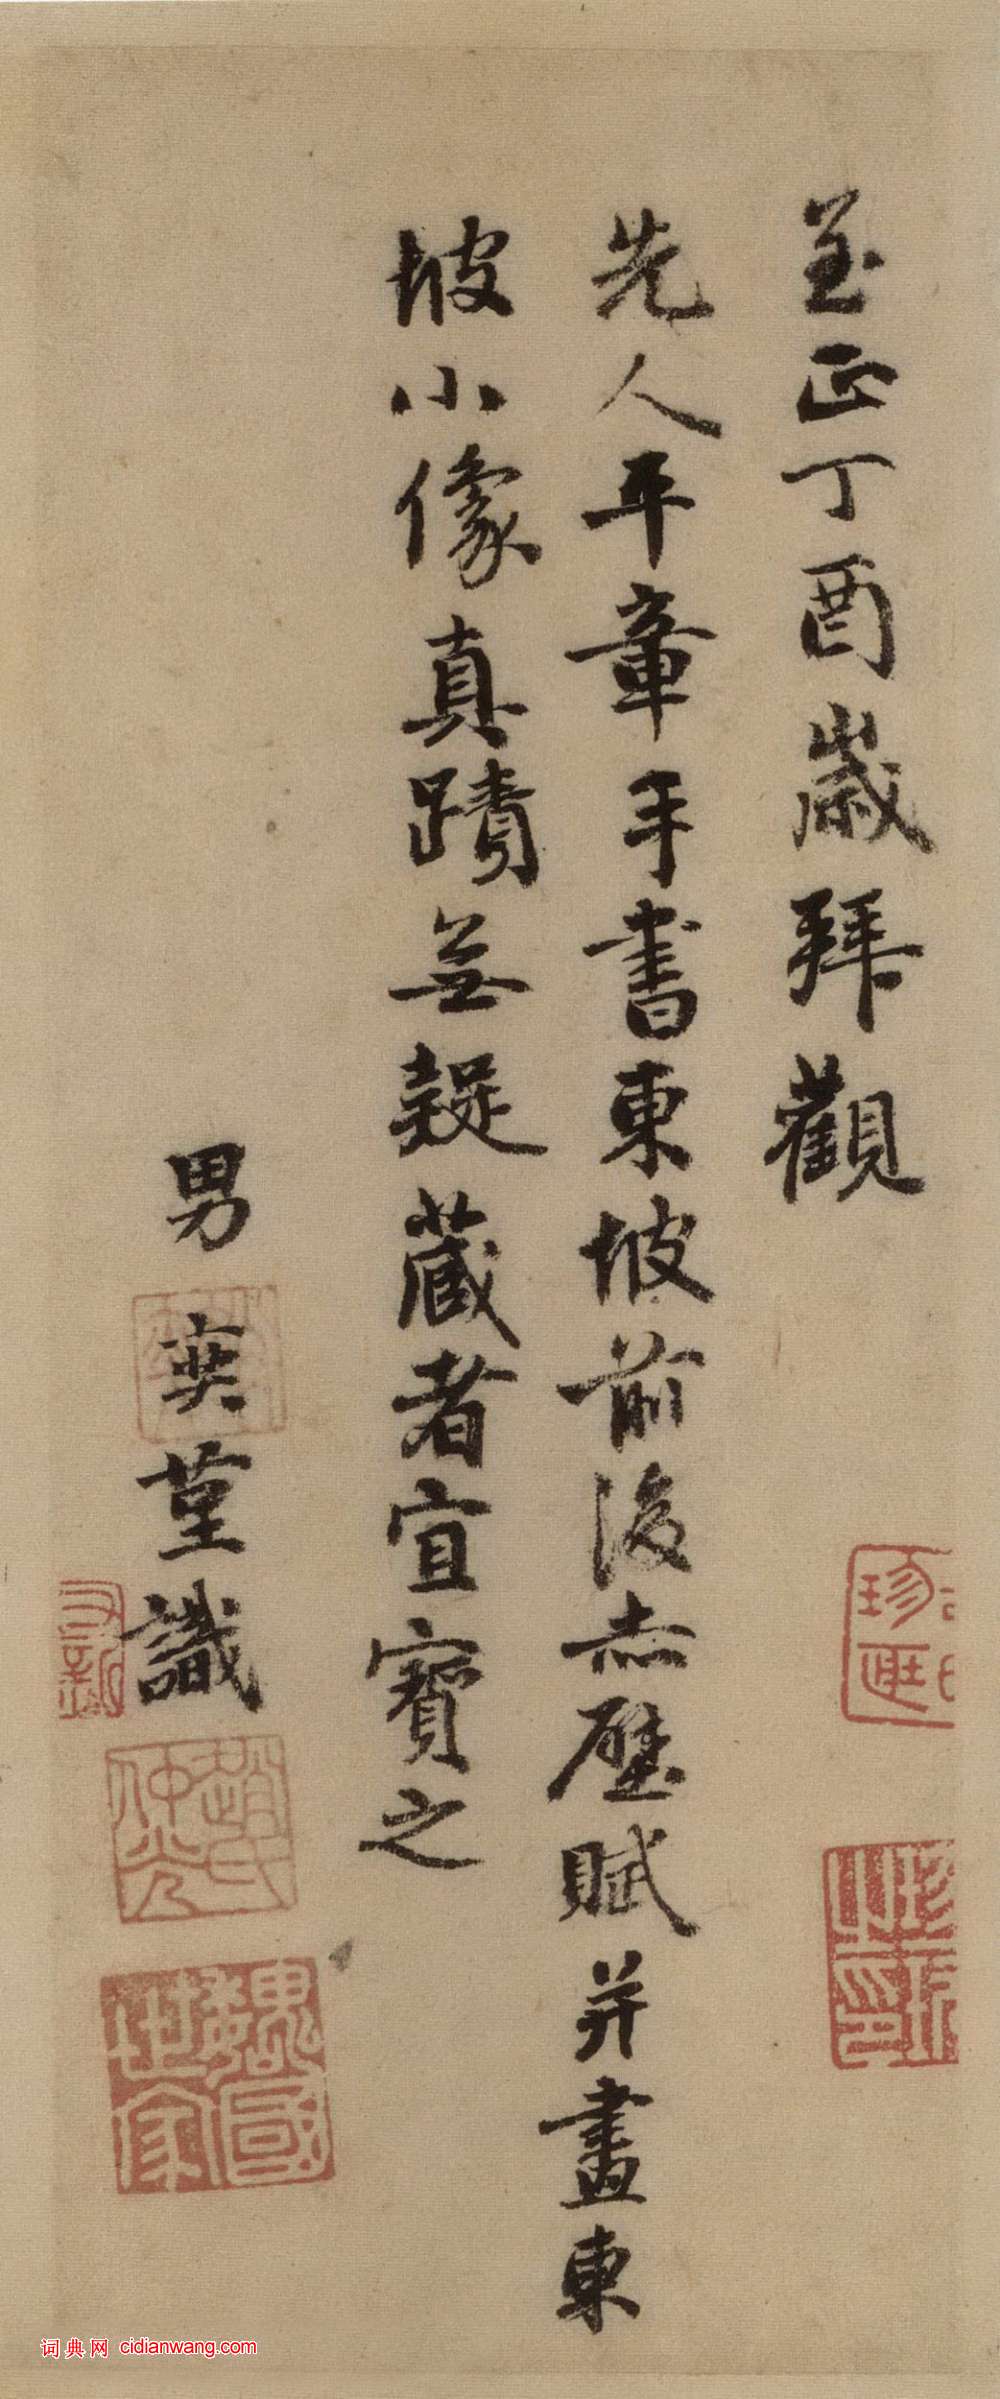 至正丁酉歲拜觀
先人平章手書東坡前後赤壁賦并畫東
坡小像真蹟無疑藏者宜寶之
男奕謹識
趙氏仲光
魏國世家
词典网 cidianwang.com